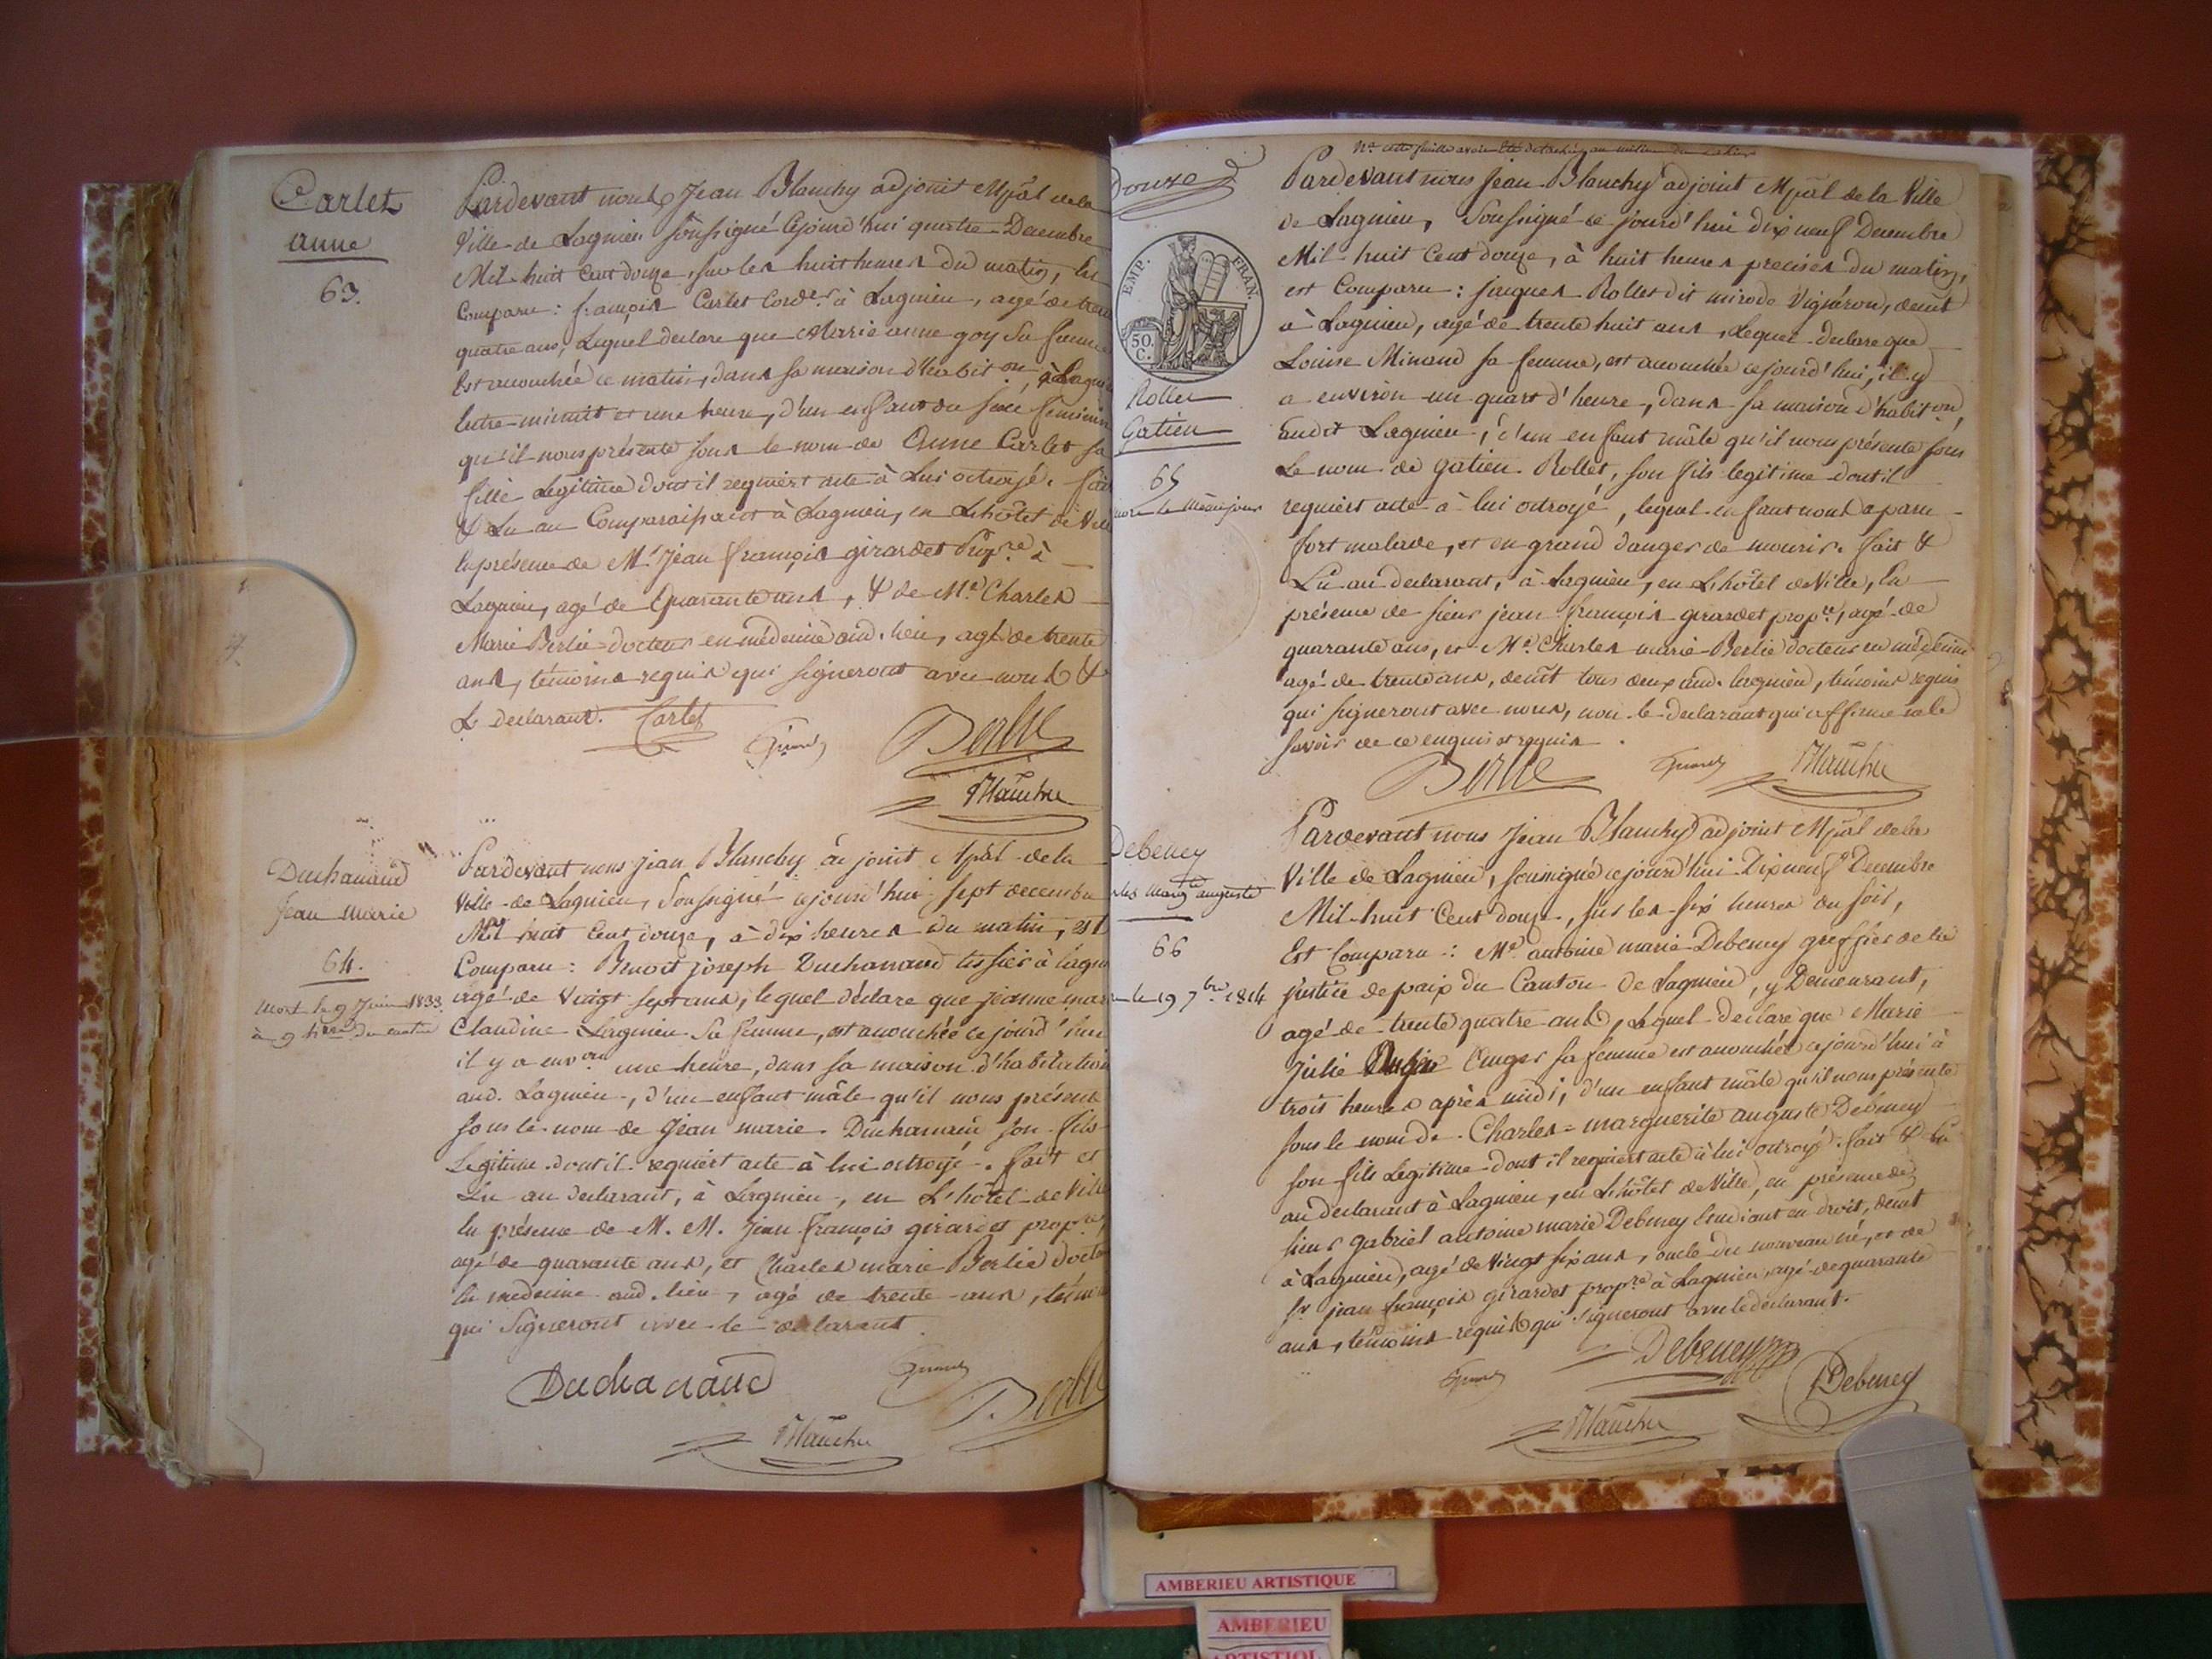 Carlet
anne
63.
Pardevant nous Jean Blanchy adjoint Mpâl de la
Ville de Lagnieu soussigné cejourd'hui quatre Decembre
Mil huit Cent douze, sur les huit heures du matin, Est
Comparu : françois Carlet Cord.er à Lagnieu, agé de trente
quatre ans, Lequel declare que Marie anne goy Sa femme
Est accouchée ce matin, dans sa maison d'habit.on, à Lagnieu
Entre minuit et une heure, d'un enfant du sexe feminin
qu'il nous présente sous le nom de Anne Carlet sa
fille Légitime dont il requiert acte à Lui octroyé. fait
& Lu au Comparaissant à Lagnieu, en L'hôtel de Ville
En présence de Mr. Jean françois girardet Prop.re à
Lagnieu, agé de Quarante ans, & de Mr. Charles
Marie Berlie docteur en médecine aud. lieu, agé de trente
ans, témoins requis qui signeront avec nous &
Le Declarant. Carlet
Girardet
Berlie
Blanchy
Duchanaud
Jean Marie
64.
Mort le 9 Juin 1833
à 9 h.res du matin
Pardevant nous Jean Blanchy adjoint Mpâl de la
Ville de Lagnieu, Soussigné cejourd'hui sept decembre
Mil huit Cent douze, à dix heures du matin, est
Comparu : Benoit joseph Duchanaud tessier à Lagnieu
agé de Vingt sept ans, lequel déclare que jeanne marie
Claudine Lagnieu Sa femme, est accouchée ce jourd'hui
il y a env.on une heure, dans sa maison d'habitation
aud. Lagnieu, d'un enfant mâle qu'il nous présente
sous le nom de Jean marie Duchanaud son fils
Legitime dont il requiert acte à lui octroyé. fait et
Lu au declarant, à Lagnieu, en L'hôtel de Ville
En présence de M. M. Jean françois girardet prop.re,
agé de quarante ans, et Charles marie Berlie docteur
En medecine aud. lieu, agé de trente ans, témoins
qui Signeront avec le declarant.
Duchanaud
Girardet
Berlie
Blanchy
Nª cette feuille avoit été detachée au milieu du cahier
Douze
EMP. FRAN.
50. C.
Rollet
Gatien
65
mort le même jour
Pardevant nous Jean Blanchy adjoint Mpâl de la Ville
de Lagnieu, Soussigné ce jourd'hui dix neuf Decembre
Mil huit Cent douze, à huit heures precises du matin,
est Comparu : jacques Rollet dit mirode Vignéron, demt
à Lagnieu, agé de trente huit ans, Lequel declare que
Louise Minand sa femme, est accouchée cejourd'hui, il y
a environ un quart d'heure, dans sa maison d'habit.on,
audit Lagnieu, d'un enfant mâle qu'il nous présente sous
Le nom de gatien Rollet, son fils legitime dont il
requiert acte à lui octroyé, lequel enfant nous a paru
fort malade, et en grand danger de mourir. fait &
Lu au declarant, à Lagnieu, en L'hôtel de Ville, En
présence de sieur jean françois girardet prop.re, agé de
quarante ans, et Mr. Charles marie Berlie docteur en médecine
agé de trente ans, demt tous deux aud. Lagnieu, témoins requis
qui signeront avec nous, non le declarant qui affirme ne le
savoir de ce enquis et requis.
Berlie
Girardet
Blanchy
Debeney
les marg.te auguste
66
le 19 7bre 1814
Pardevant nous Jean Blanchy adjoint Mpâl de la
Ville de Lagnieu, soussigné cejourd'hui Dixneuf Decembre
Mil huit Cent douze, sur les six heures du soir,
Est Comparu : Mr. antoine marie Debeney greffier de la
justice de paix du Canton de Lagnieu, y Demeurant,
agé de trente quatre ans, Lequel declare que Marie
Julie Auger sa femme est accouchée cejourd'hui à
trois heures après midi, d'un enfant mâle qu'il nous présente
sous le nom de Charles = marguerite auguste Debeney
son fils Legitime dont il requiert acte à lui octroyé. fait & Lu
au declarant à Lagnieu, en L'hôtel de Ville, en présence de
sieur gabriel antoine marie Debeney Etudiant en droit, demt
à Lagnieu, agé de Vingt six ans, oncle du nouveau né, et de
Sr. jean françois girardet prop.re à Lagnieu, agé de quarante
ans, témoins requis qui signeront avec le declarant.
Girardet
Debeney
Blanchy
Debeney
AMBERIEU ARTISTIQUE
AMBERIEU
ARTISTIQ